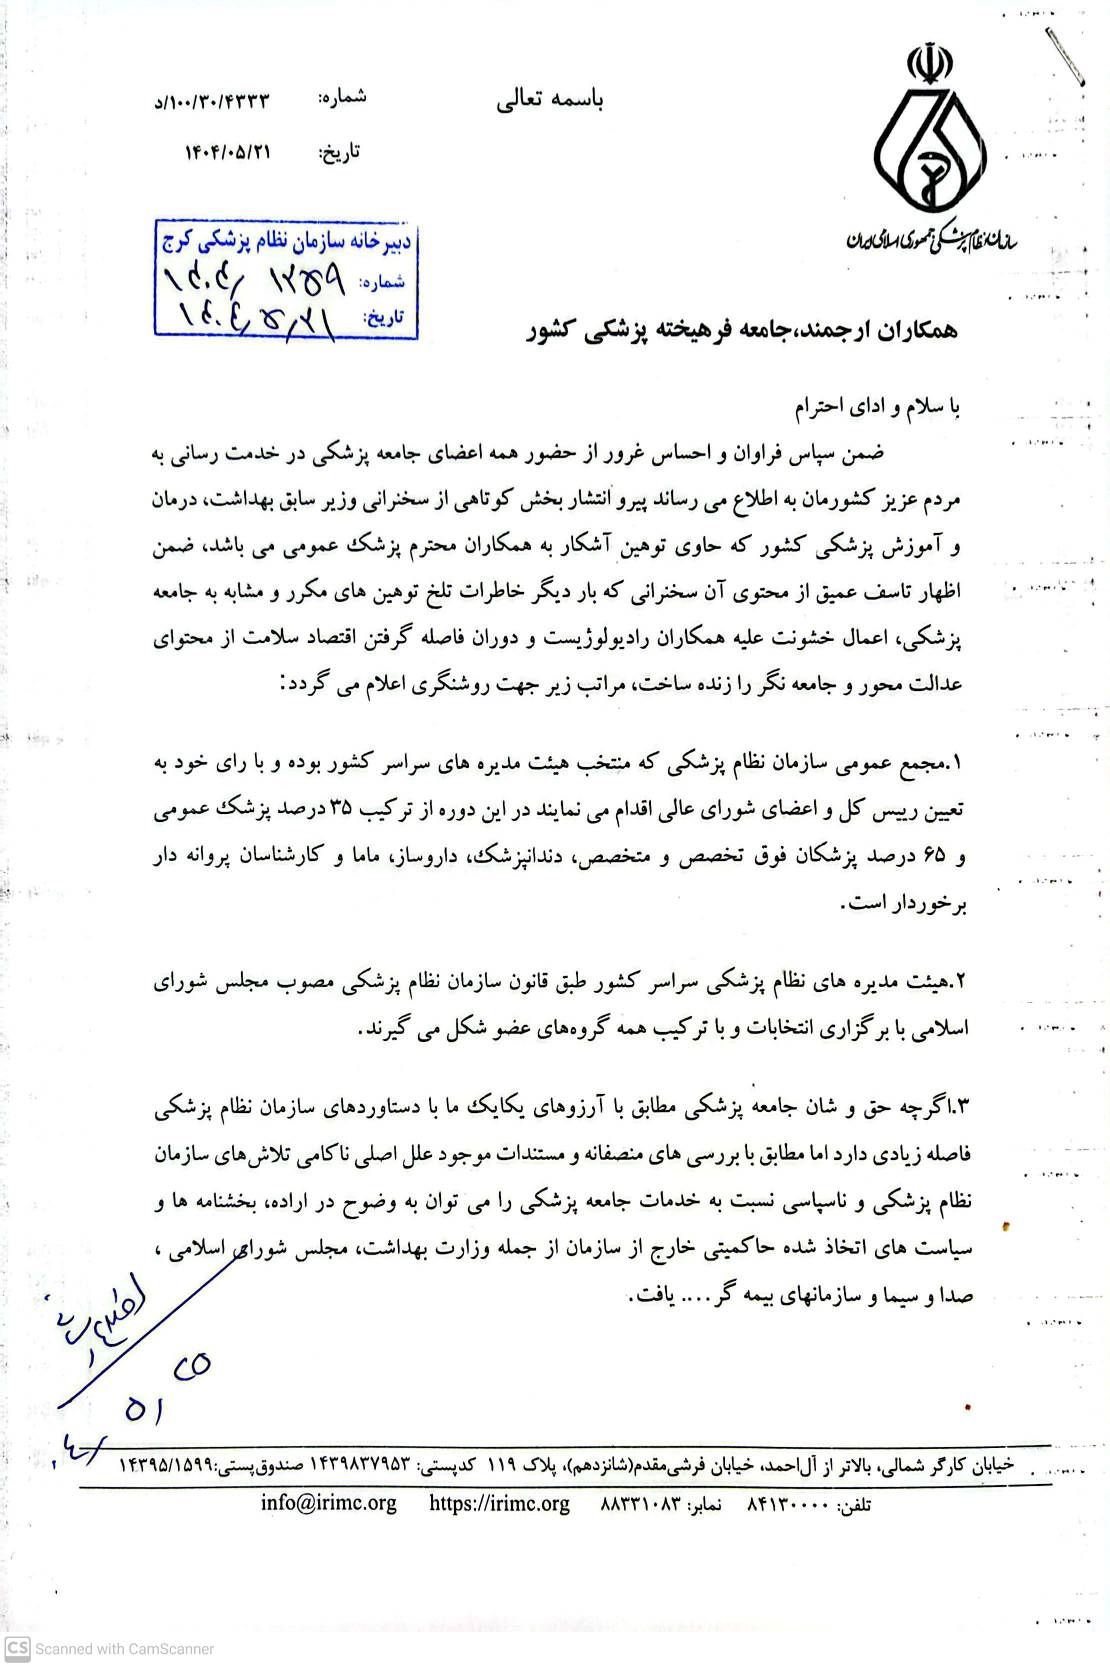 باسمه تعالی
شماره: ۱۰۰/۳۰/۴۳۳۳/د
تاریخ: ۱۴۰۴/۰۵/۲۱
سازمان نظام پزشکی جمهوری اسلامی ایران
دبیرخانه سازمان نظام پزشکی کرج
شماره: ۱۴۰۴/ ۱۲۵۹
تاریخ: ۱۴۰۴/۵/۲۱
همکاران ارجمند،جامعه فرهیخته پزشکی کشور
با سلام و ادای احترام
ضمن سپاس فراوان و احساس غرور از حضور همه اعضای جامعه پزشکی در خدمت رسانی به
مردم عزیز کشورمان به اطلاع می رساند پیرو انتشار بخش کوتاهی از سخنرانی وزیر سابق بهداشت، درمان
و آموزش پزشکی کشور که حاوی توهین آشکار به همکاران محترم پزشک عمومی می باشد، ضمن
اظهار تاسف عمیق از محتوی آن سخنرانی که بار دیگر خاطرات تلخ توهین های مکرر و مشابه به جامعه
پزشکی، اعمال خشونت علیه همکاران رادیولوژیست و دوران فاصله گرفتن اقتصاد سلامت از محتوای
عدالت محور و جامعه نگر را زنده ساخت، مراتب زیر جهت روشنگری اعلام می گردد:
۱.مجمع عمومی سازمان نظام پزشکی که منتخب هیئت مدیره های سراسر کشور بوده و با رای خود به
تعیین رییس کل و اعضای شورای عالی اقدام می نمایند در این دوره از ترکیب ۳۵ درصد پزشک عمومی
و ۶۵ درصد پزشکان فوق تخصص و متخصص، دندانپزشک، داروساز، ماما و کارشناسان پروانه دار
برخوردار است.
۲.هیئت مدیره های نظام پزشکی سراسر کشور طبق قانون سازمان نظام پزشکی مصوب مجلس شورای
اسلامی با برگزاری انتخابات و با ترکیب همه گروه‌های عضو شکل می گیرند.
۳.اگرچه حق و شان جامعه پزشکی مطابق با آرزوهای یکایک ما با دستاوردهای سازمان نظام پزشکی
فاصله زیادی دارد اما مطابق با بررسی های منصفانه و مستندات موجود علل اصلی ناکامی تلاش‌های سازمان
نظام پزشکی و ناسپاسی نسبت به خدمات جامعه پزشکی را می توان به وضوح در اراده، بخشنامه ها و
سیاست های اتخاذ شده حاکمیتی خارج از سازمان از جمله وزارت بهداشت، مجلس شورای اسلامی ،
صدا و سیما و سازمانهای بیمه گر.... یافت.
خیابان کارگر شمالی، بالاتر از آل‌احمد، خیابان فرشی‌مقدم(شانزدهم)، پلاک ۱۱۹ کدپستی: ۱۴۳۹۸۳۷۹۵۳ صندوق‌پستی:۱۴۳۹۵/۱۵۹۹
تلفن: ۸۴۱۳۰۰۰۰ نمابر: ۸۸۳۳۱۰۸۳ https://irimc.org info@irimc.org
CS Scanned with CamScanner